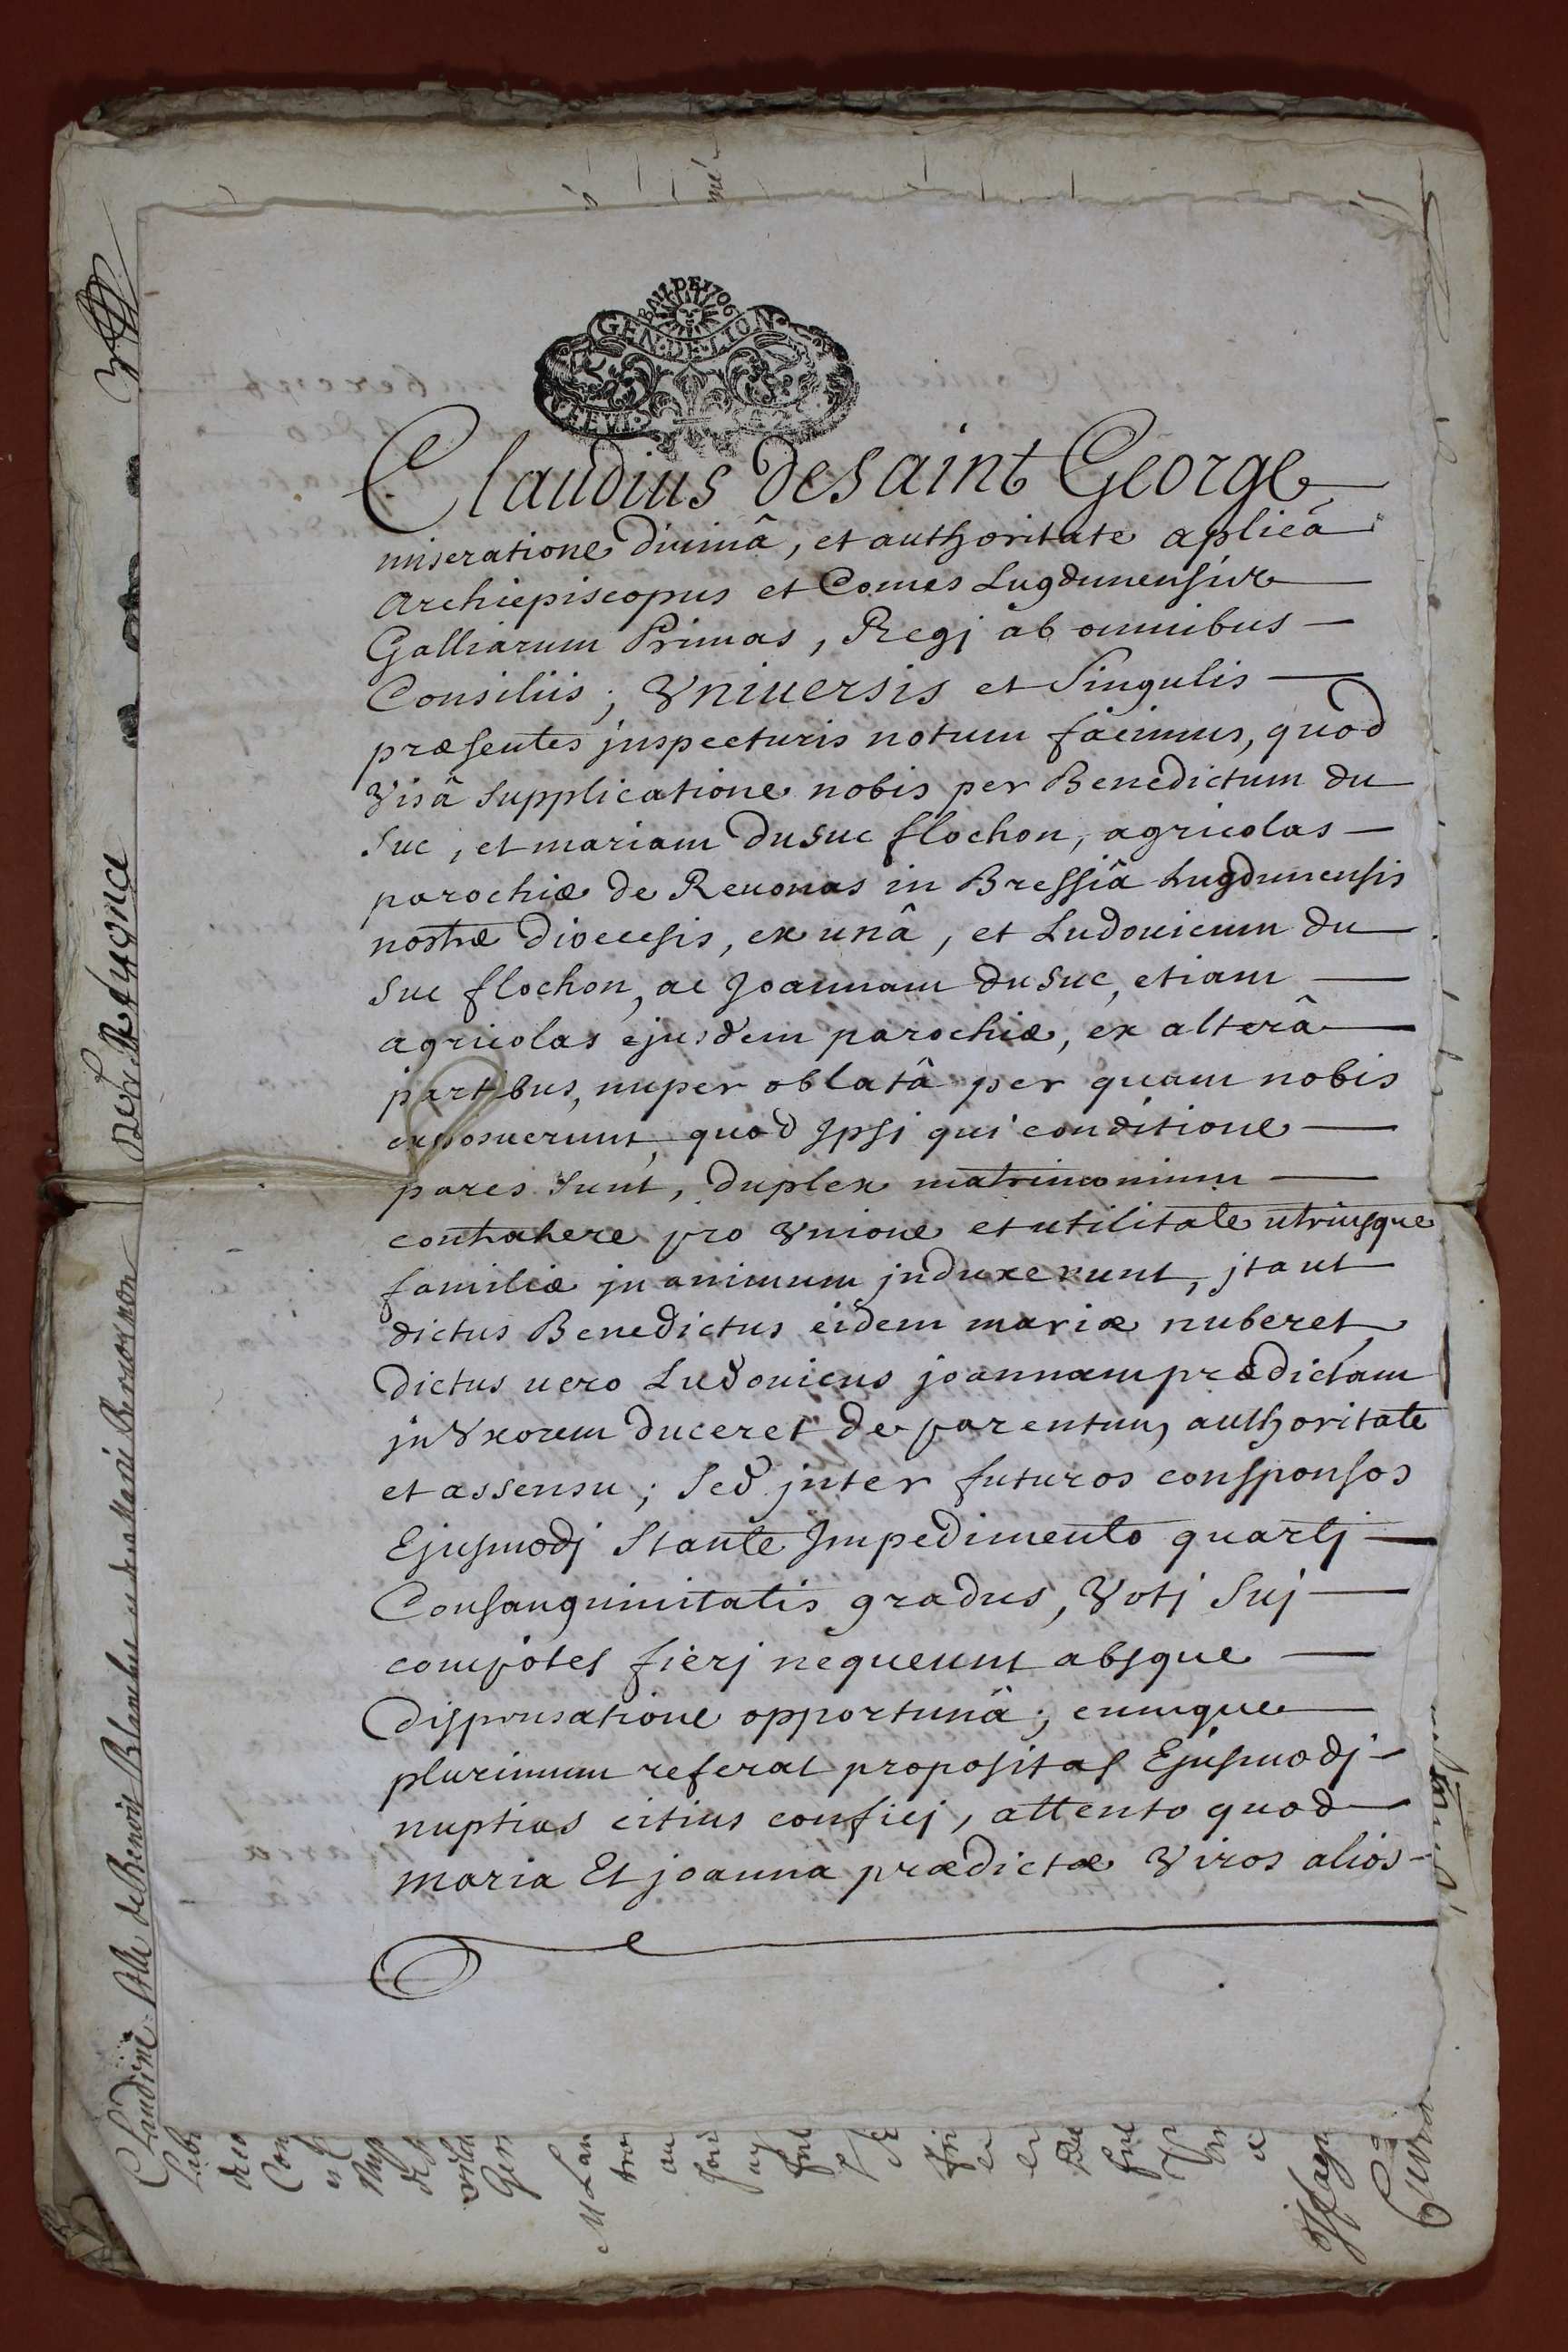 BAIL DE 1706
GEN·DE·LION
Claudius de saint George
miseratione diuinâ, et authoritate aplicâ
Archiepiscopus et Comes Lugdunensis
Galliarum Primas, Regj ab omnibus
Consiliis; Vniuersis et Singulis
præsentes jnspecturis notum facimus, quod
Visâ Supplicatione nobis per Benedictum du
Suc, et mariam du Suc flochon, agricolas
parochiæ de Reuonas in Bressiâ Lugdunensis
nostræ diœcesis, ex unâ, et Ludouicum du
Suc flochon, ac Joannam du Suc, etiam
agricolas ejusdem parochiæ, ex alterâ
partibus, nuper oblatâ per quam nobis
exposuerunt, quod Jpsj qui conditione
pares sunt, duplex matrimonium
contrahere pro Vnione et utilitate utriusque
familiæ jn animum jnduxerunt, jta ut
dictus Benedictus eidem mariæ nuberet,
dictus uero Ludouicus joannam prædictam
jn Vxorem duceret de parentum authoritate
et assensu; Sed jnter futuros consponsos
Ejusmodj Stante Jmpedimento quartj
Consanguinitatis gradus, Votj Suj
compotes fierj nequeunt absque
dispensatione opportunâ; cumque
plurimum referat propositas Ejusmodj
nuptias citius conficj, attento quod
maria Et joanna prædictæ Viros alios